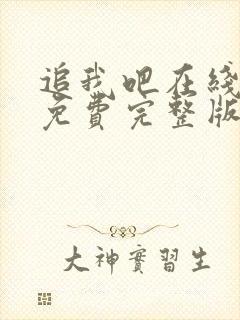 追我吧在綫
免費完整版
大神實習生